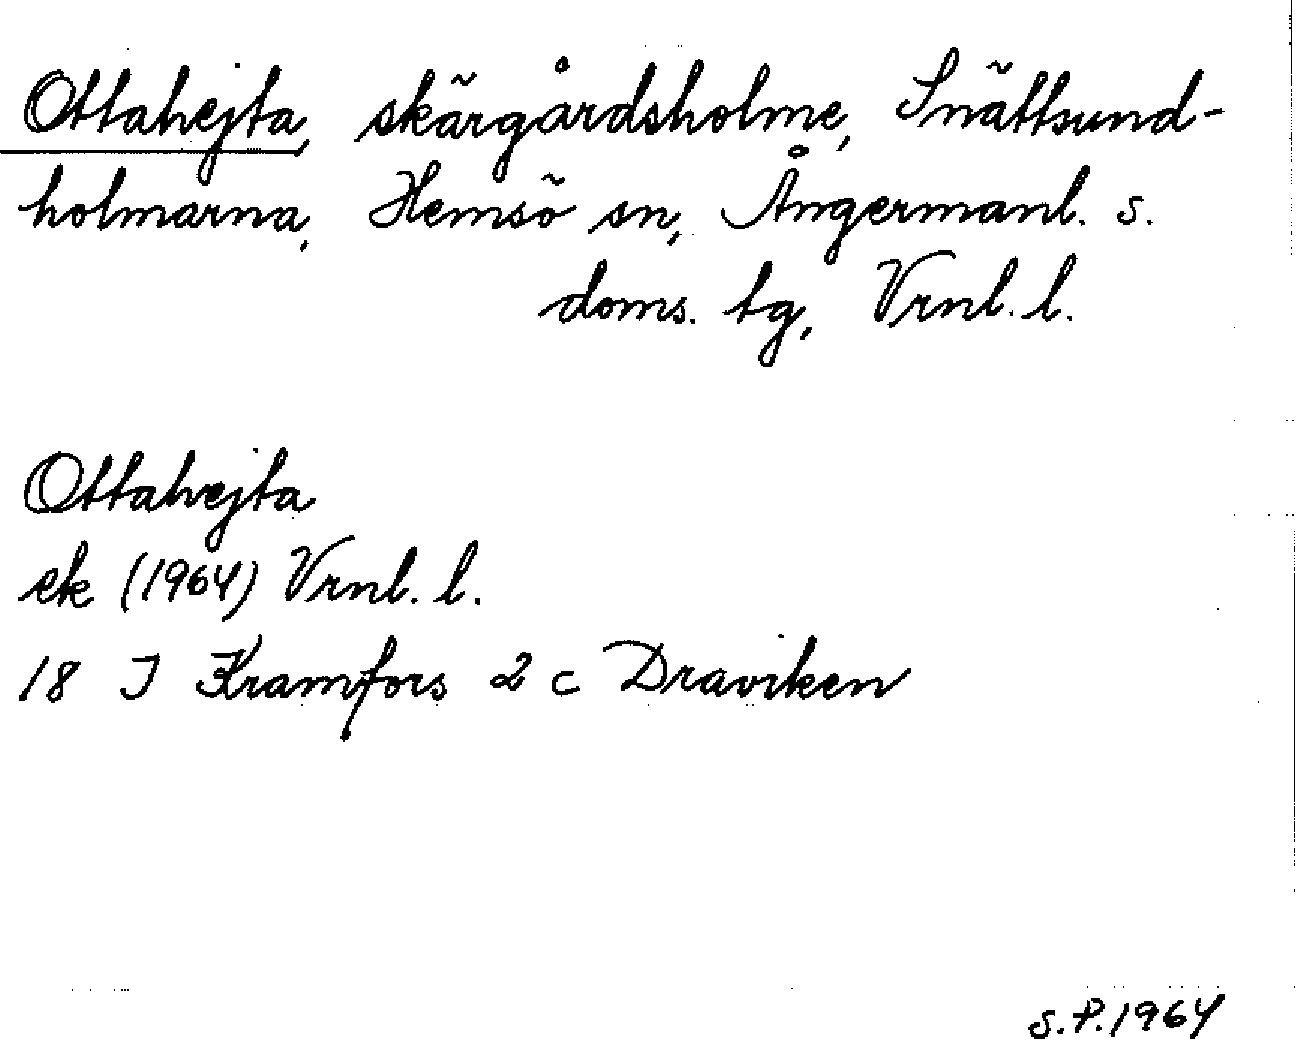 Ottahejta, skärgårdsholme, Snättsund-
holmarna, Hemsö sn, Ångermanl. s.
doms. tg, Vrnl. l.
Ottahejta
ek (1964) Vrnl. l.
18 J Kramfors 2 c Draviken
S.P. 1964